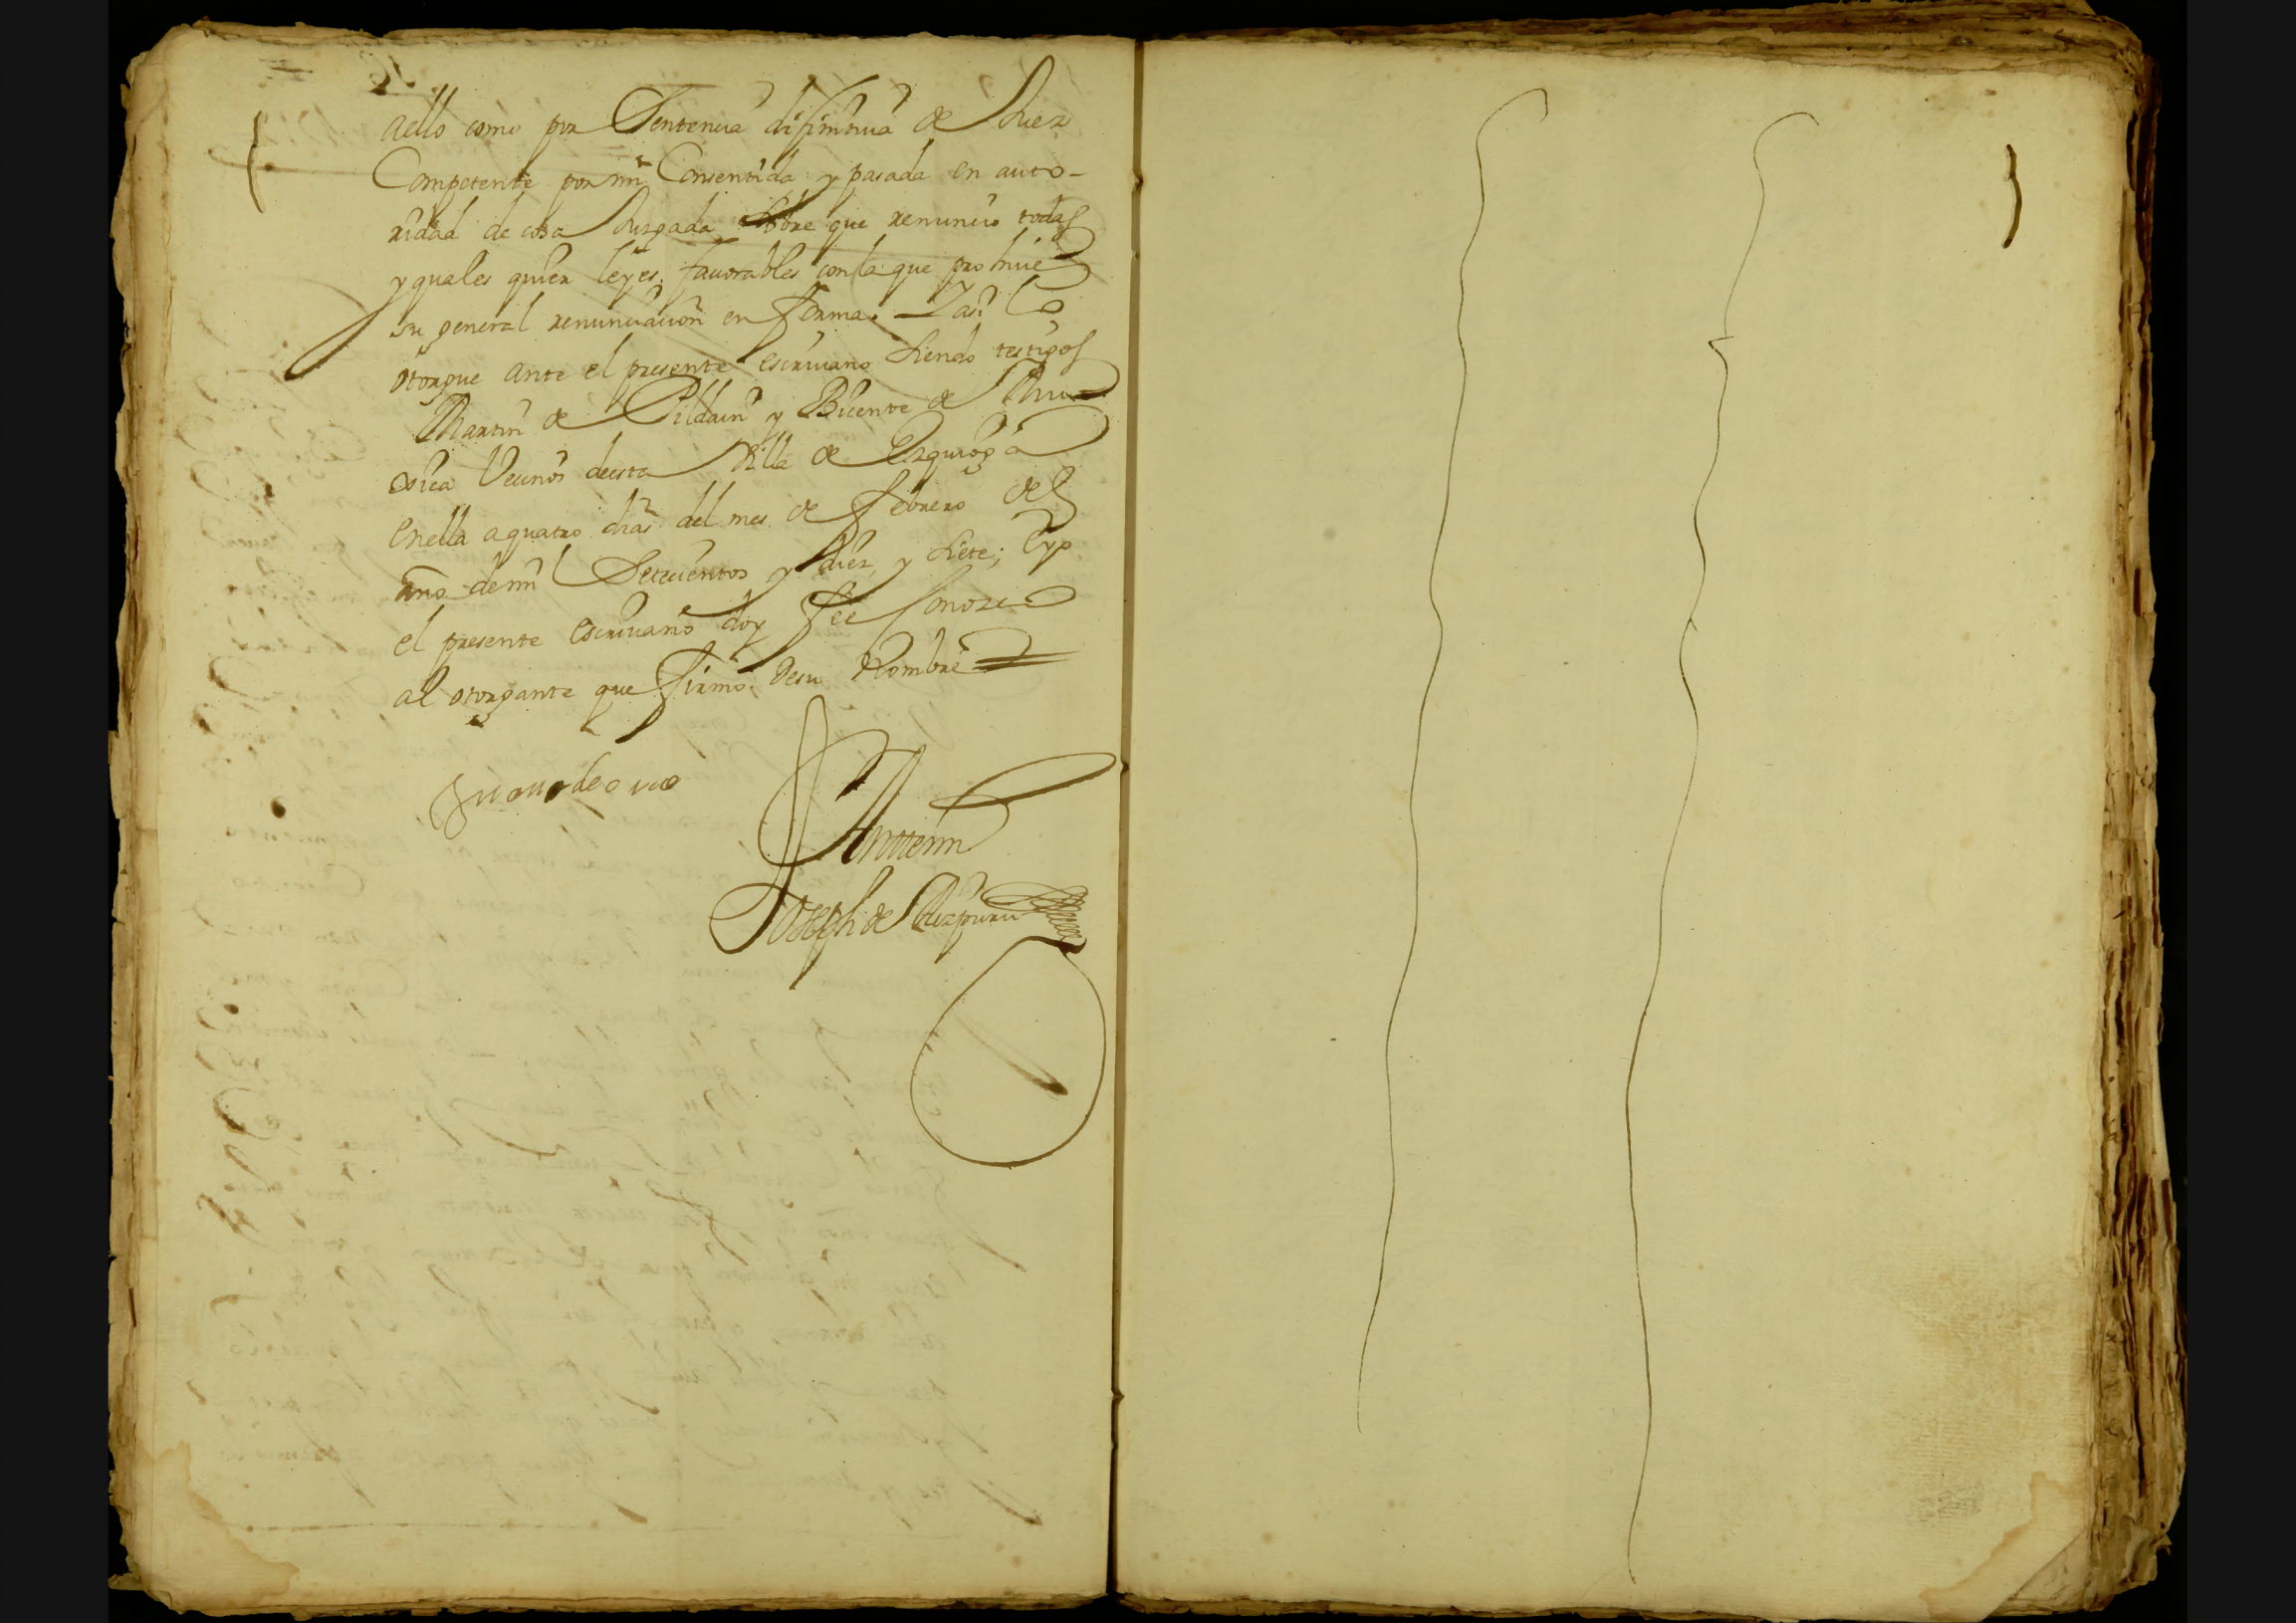 aello como por Sentencia difinitiua de Juez
Competente por mi Consentida y pasada en auto-
ridad de cosa Juzgada sobre que renuncio todas
y quales quier leyes favorables con la que prohiue
su general renunciacion en forma. Yasi lo
otorgue ante el presente escriuano siendo testigos
Martin de Pildain y Bicente de
Vecinos desta Villa de Ezquioga
enella a quatro dias del mes de febrero del
año de mil Setecientos y diez y siete; Eyo
el presente escriuano doy fee Conozco
al otorgante que firmo de su Nombre
Antemi
Joseph de Aizpuru